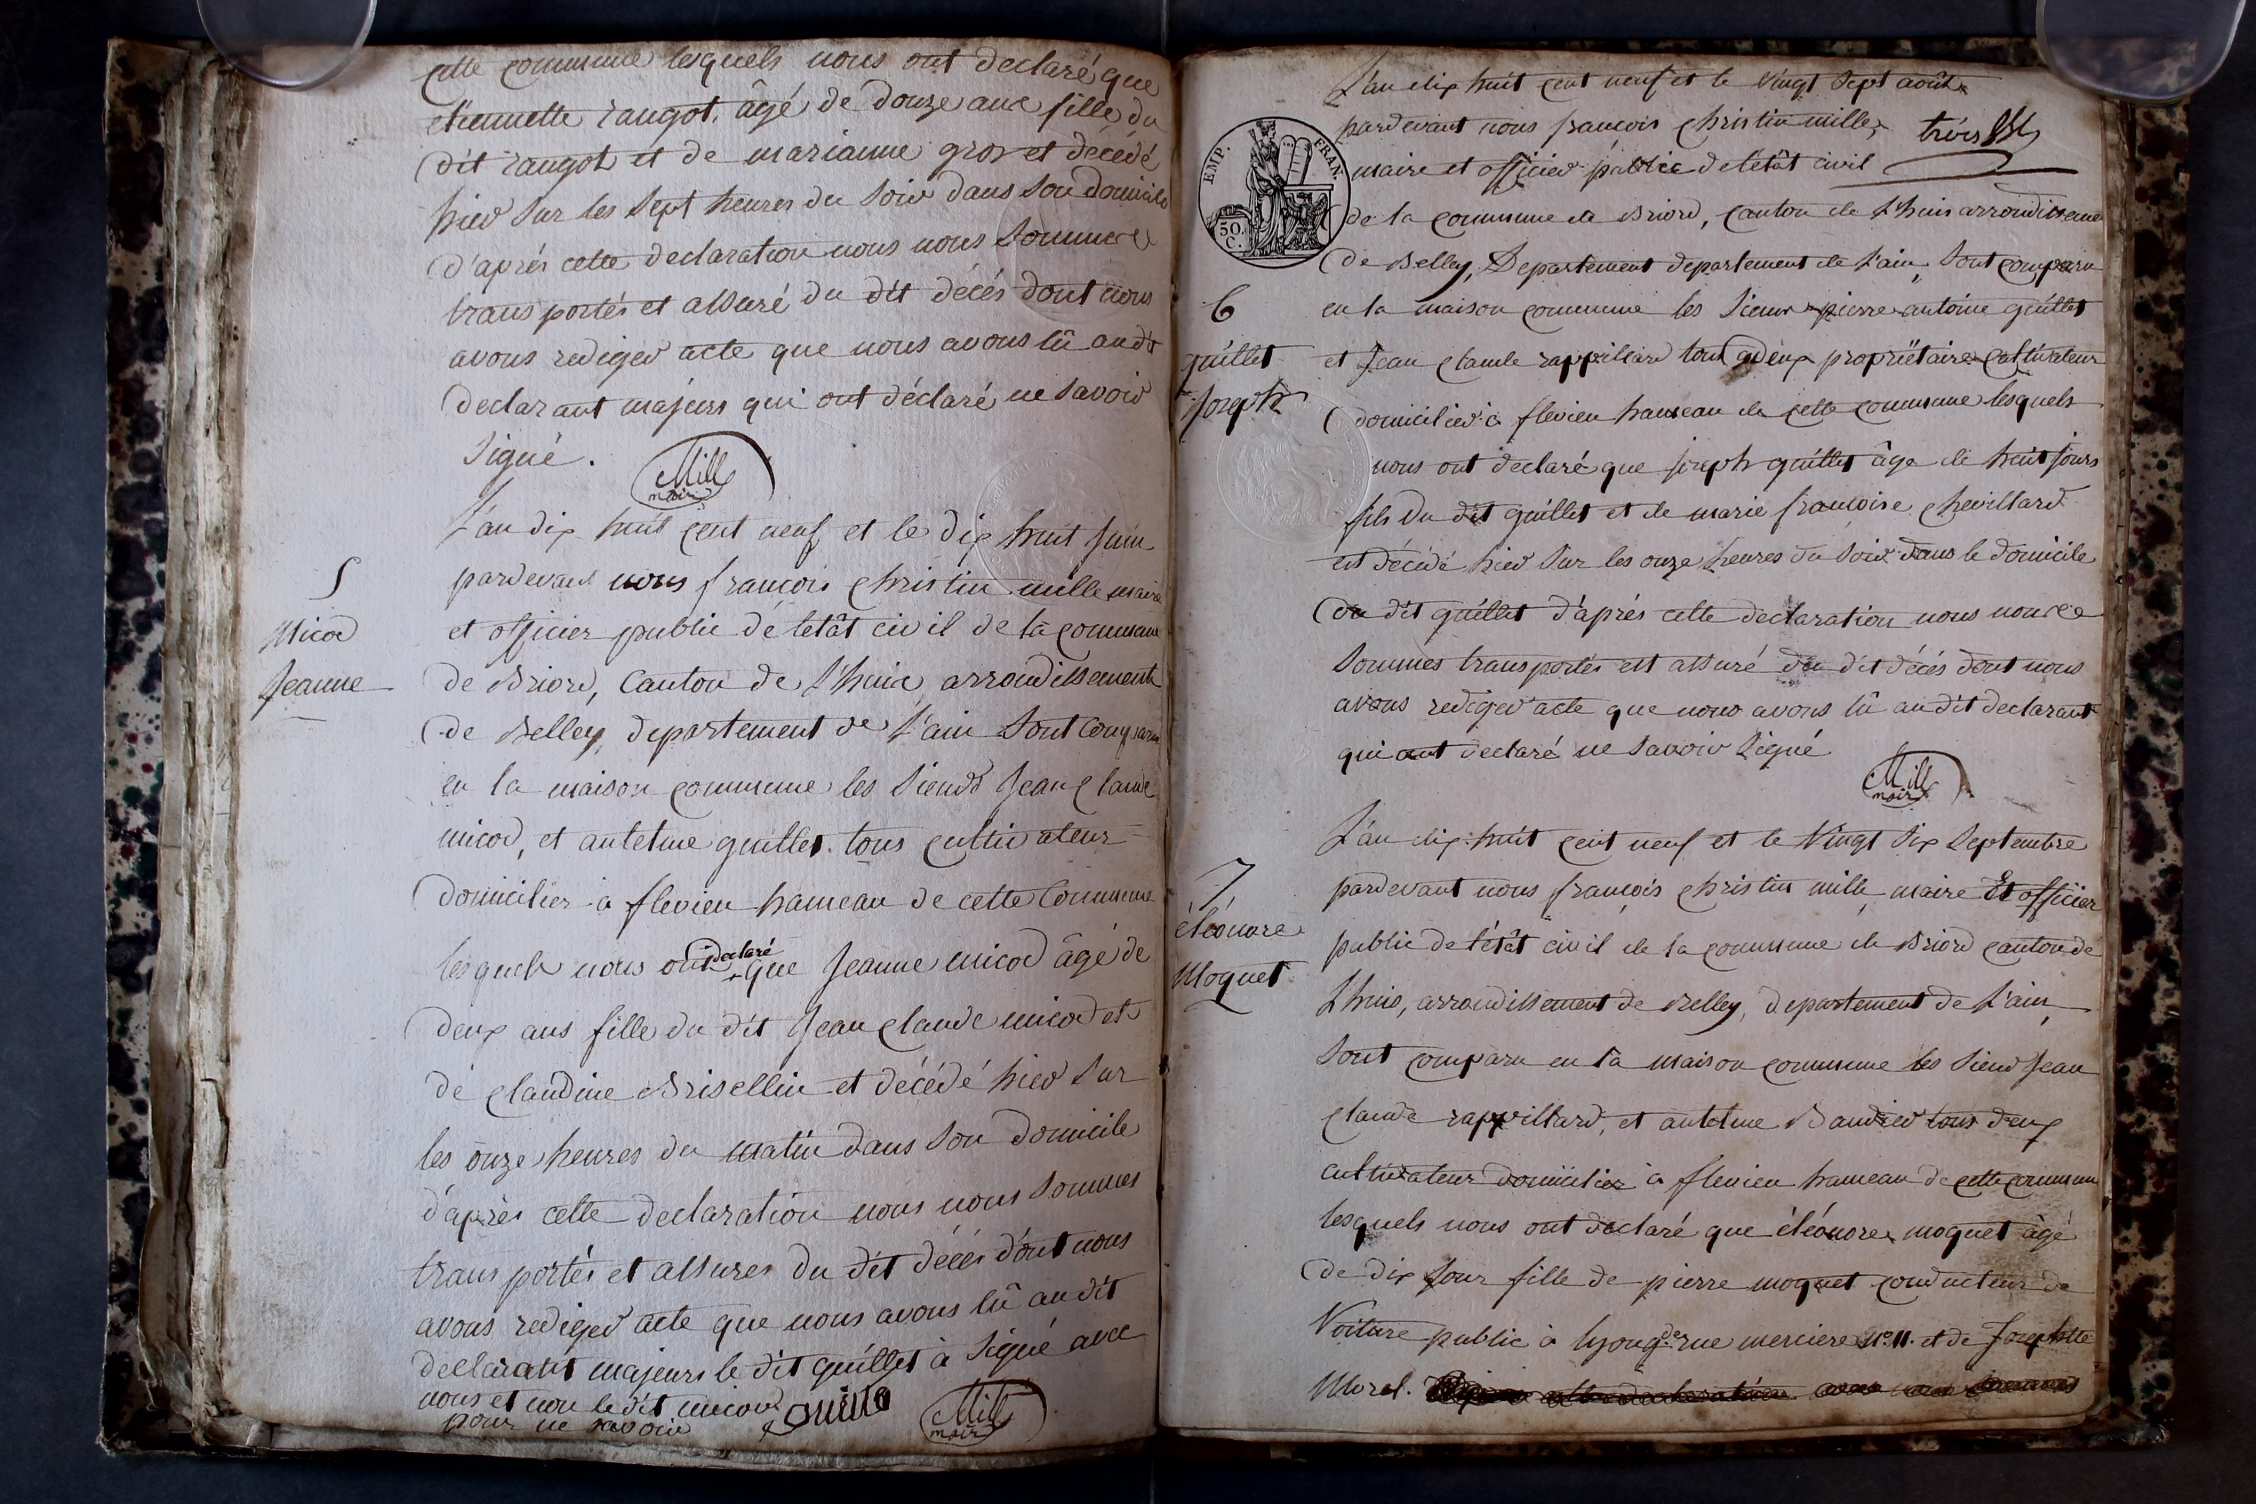 cette commune lesquels nous ont declaré que
etiennette rangot, âgé de douze ans fille du
dit rangot et de marianne gros et décédé
hier sur les sept heures du soir dans son domicile
d'aprés cette declaration nous nous sommes
transportés et assuré du dit décés dont nous
avons rediger acte que nous avons lû au dt
declarant majeurs qui ont déclaré ne savoir
signé.
Mille
maire
5
Micod
Jeanne
L'an dix huit cent neuf et le dix huit juin
pardevant nous francois christin mille maire
et officier public de letât civil de la commune
de Briord, Canton de L'huis arrondissement
de Belley, departement de L'ain Sont Comparu
en la maison commune les Sieurs Jean Claude
micod, et antelme guillet tous cultivateur
domicilier à flevieu hameau de cette Commune
lesquels nous ont declaré que Jeanne micod âgé de
deux ans fille du dit Jean claude micod et
de claudine Brisellin et décédé hier sur
les onze heures du matin dans son domicile
d'aprés cette declaration nous nous sommes
transportés et assures du dit décés dont nous
avons rediger acte que nous avons lû au dit
declarant majeurs le dit guillet à signé avec
nous et non le dit micod
pour ne savoir
Guille
Mille
maire
L'an dix huit cent neuf et le vingt sept août
pardevant nous francois christin mille,
maire et officier public de letât civil
EMP. FRAN.
50.
C.
de la commune de Briord, Canton de L'huis arrondisseme
de Belley, Departement departement de L'ain, Sont comparu
6
guillet
Joseph
en la maison commune les Sieur pierre antoine guillet
et Jean claude rappillard tous deux propriëtaire Cultivateur
domicilier à flevieu hameau de cette commune lesquels
nous ont declaré que joseph guillet âge de huit jours
fils du dit guillet et de marie francoise chevillard
est décédé hier sur les onze heures du soir dans le domicile
du dit guillet d'aprés cette declaration nous nous
sommes transportés est assuré du dit décés dont nous
avons rediger acte que nous avons lû au dit declarant
qui ont declaré ne savoir signé
Mille
maire
7
éléonore
Moquet
L'an dix huit cent neuf et le Vingt Six Septembre
pardevant nous francois christin mille maire Et officier
public de létât civil de la commune de Briord canton de
L'huis, arrondissement de Belley, departement de L'ain,
Sont comparu en la maison commune les Sieur Jean
claude rappillard, et antelme Baudier tous deux
cultivateur domicilier à flevieu hameau de cette commun
lesquels nous ont declaré que éléonore moquet âgé
de dix Jour fille de pierre moquet conducteur de
Voiture public à Lyon rue merciere N.º 11. et de Josephtte
Morel.